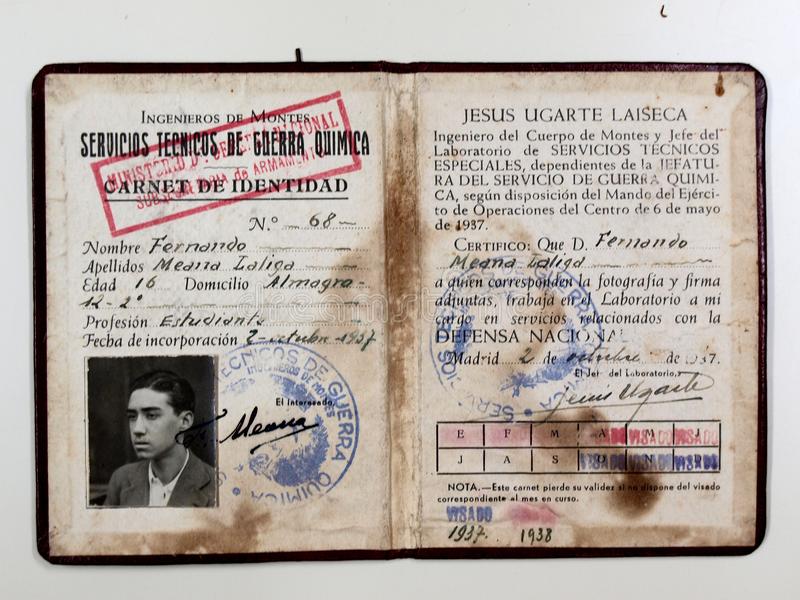 INGENIEROS DE MONTES
SERVICIOS TECNICOS DE GUERRA QUIMICA
MINISTERIO D. DEFENSA NACIONAL
SUBSECRETARIA de ARMAMENTO
CARNET DE IDENTIDAD
N.º 68
Nombre Fernando
Apellidos Meana
Edad 16 Domicilio Almagro-
12-2º
Profesión Estudiante
Fecha de incorporación 2-octubre-1937
El interesado,
F. Meana
TECNICOS DE GUERRA QUIMICA
INGENIEROS DE MONTES
JESUS UGARTE LAISECA
Ingeniero del Cuerpo de Montes y Jefe del
Laboratorio de SERVICIOS TÉCNICOS
ESPECIALES, dependientes de la JEFATU-
RA DEL SERVICIO DE GUERRA QUIMI-
CA, según disposición del Mando del Ejérci-
to de Operaciones del Centro de 6 de mayo
de 1937.
CERTIFICO: Que D. Fernando
Meana
a quien corresponden la fotografía y firma
adjuntas, trabaja en el Laboratorio a mi
cargo en servicios relacionados con la
DEFENSA NACIONAL
Madrid 2 de octubre de 1937.
El Jefe del Laboratorio,
Jesús Ugarte
E F M A M J
J A S O N D
VISADO VISADO VISADO
VISADO VISADO VISADO
NOTA.—Este carnet pierde su validez si no dispone del visado
correspondiente al mes en curso.
VISADO
1937. 1938
dreamstime